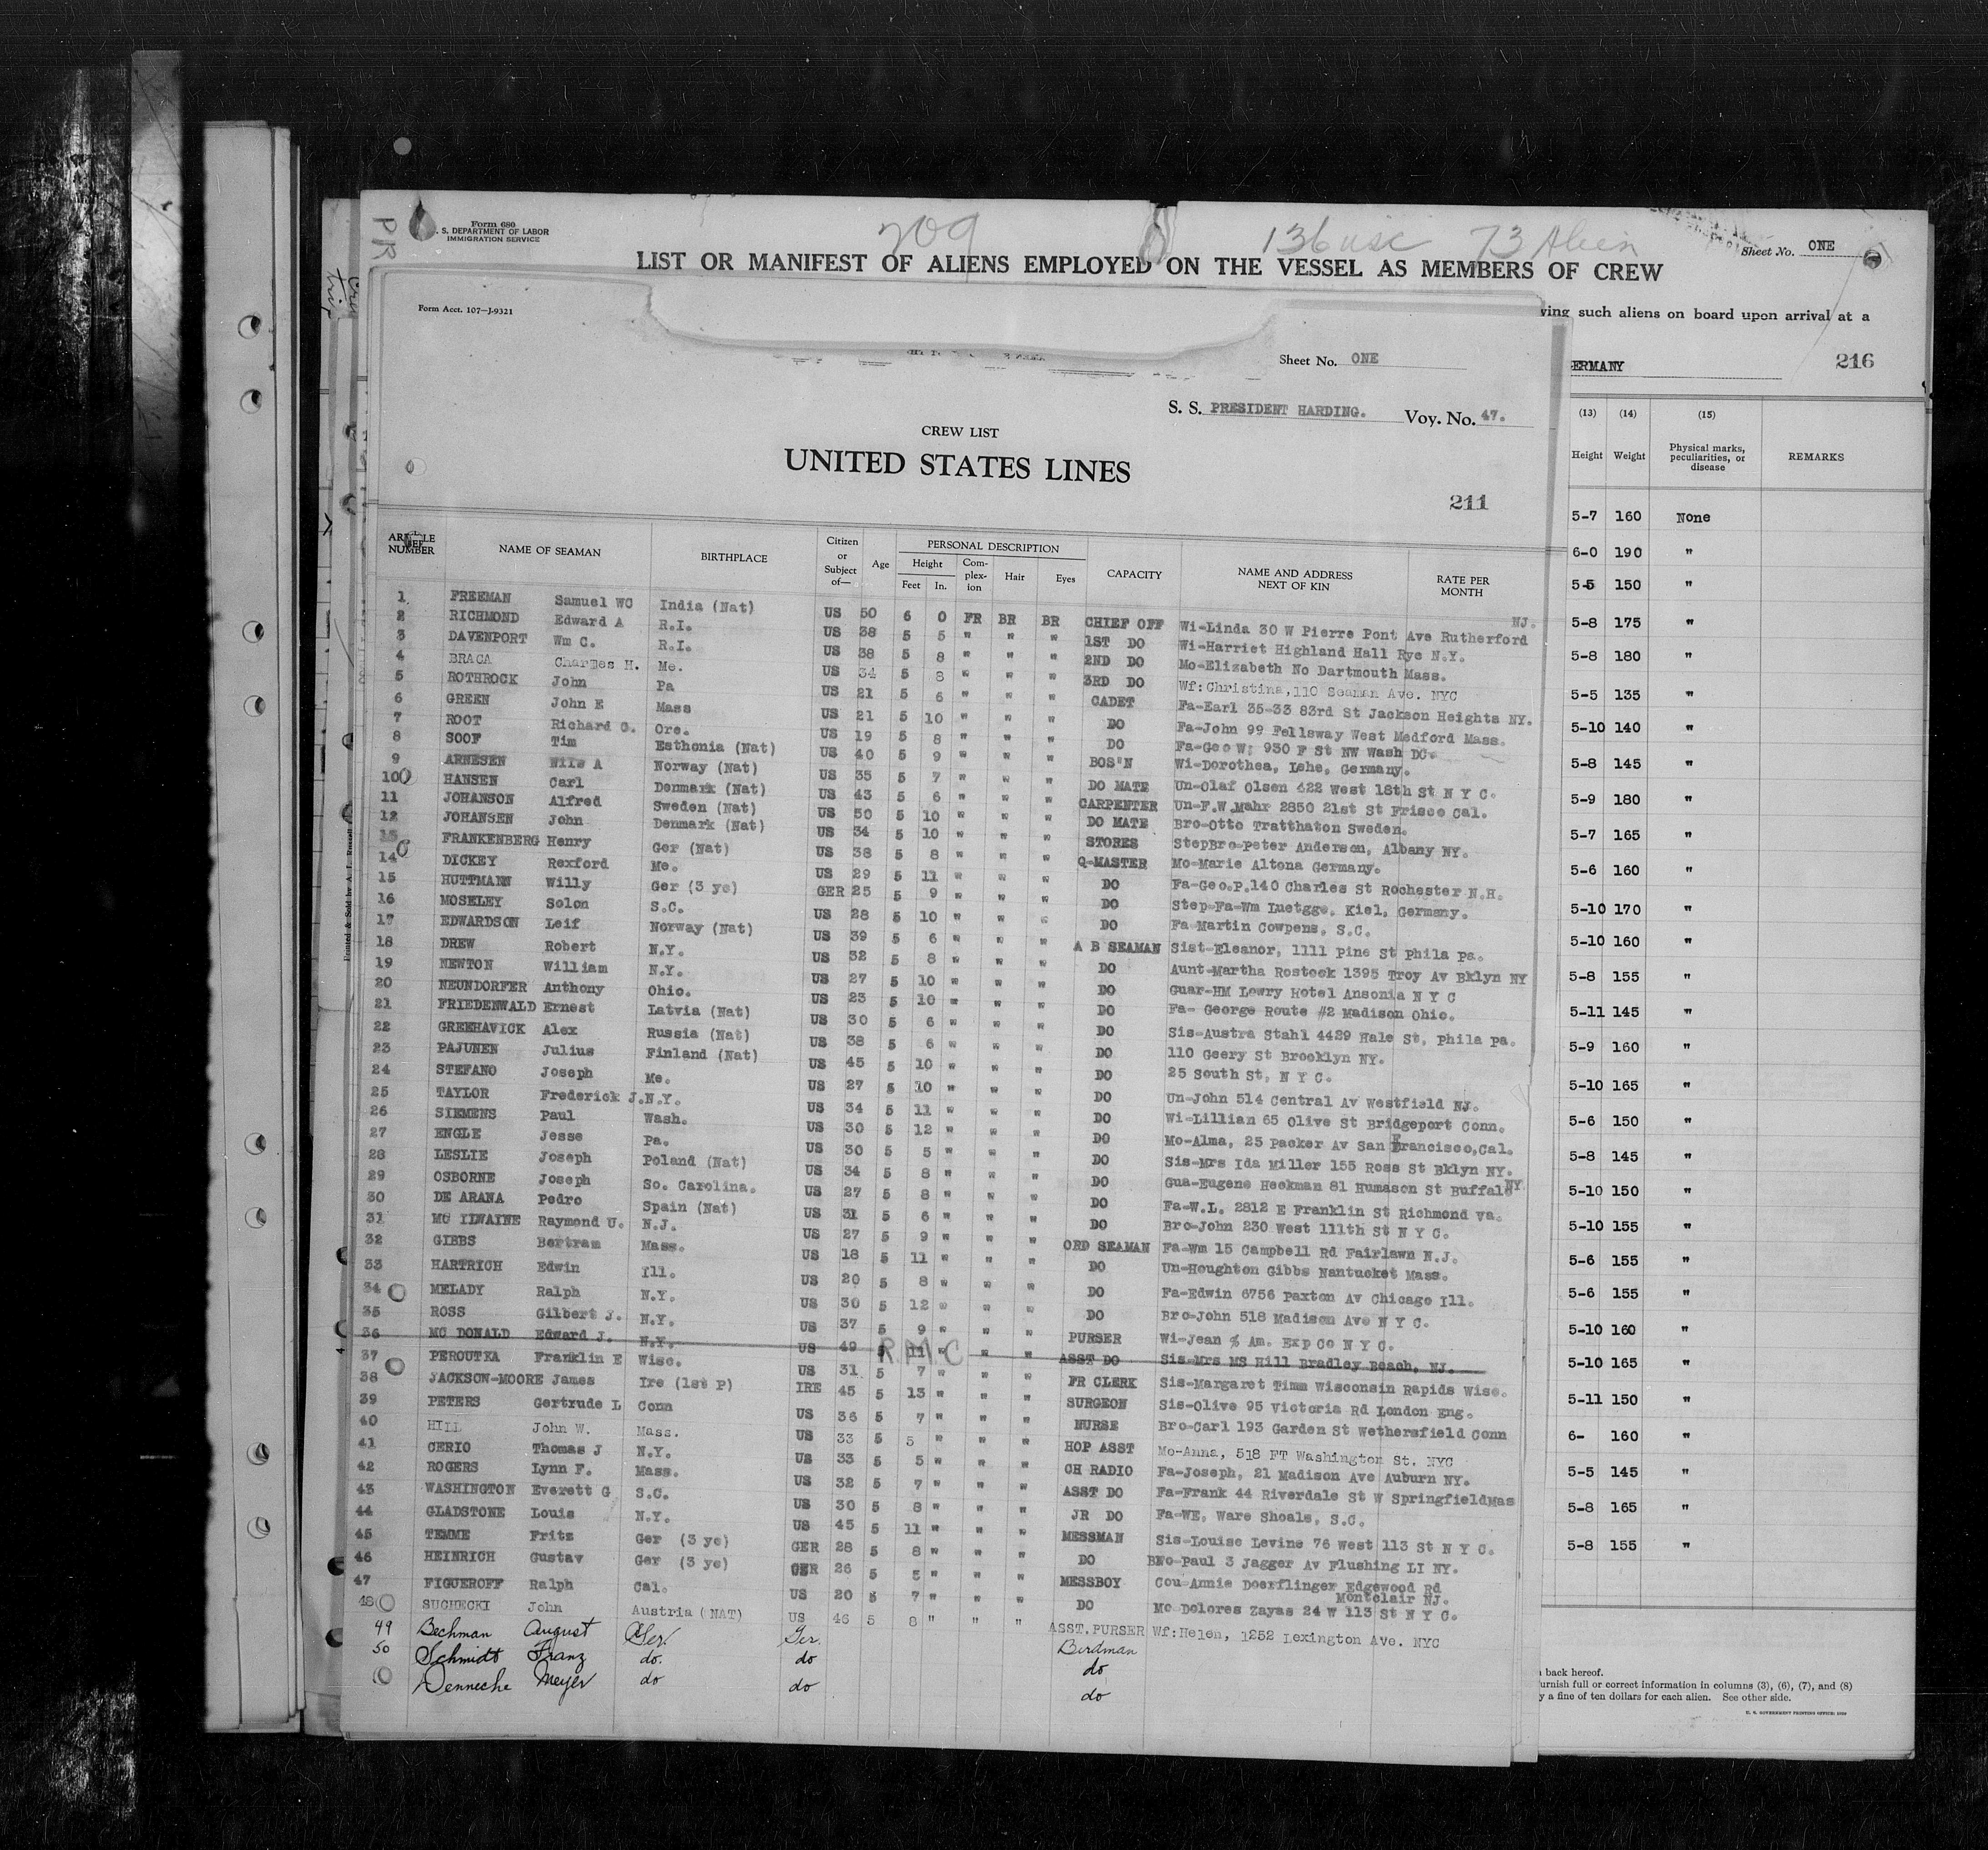 PR
Form 680
S. DEPARTMENT OF LABOR
IMMIGRATION SERVICE
209
136 usc 73 Alien
Sheet No. ONE
LIST OR MANIFEST OF ALIENS EMPLOYED ON THE VESSEL AS MEMBERS OF CREW
ving such aliens on board upon arrival at a
ERMANY
216
Form Acct. 107—J-9321
Sheet No. ONE
S. S. PRESIDENT HARDING. Voy. No. 47.
CREW LIST
UNITED STATES LINES
211
NUMBER NAME OF SEAMAN BIRTHPLACE Citizen or Subject of— Age PERSONAL DESCRIPTION Height Feet In. Complexion Hair Eyes CAPACITY NAME AND ADDRESS NEXT OF KIN RATE PER MONTH
1 FREEMAN Samuel WC India (Nat) US 50 6 0 FR BR BR CHIEF OFF Wi-Linda 30 W Pierre Pont Ave Rutherford NJ.
2 RICHMOND Edward A R.I. US 38 5 5 " " " 1ST DO Wi-Harriet Highland Hall Rye N.Y.
3 DAVENPORT Wm C. R.I. US 38 5 8 " " " 2ND DO Mo-Elizabeth No Dartmouth Mass.
4 BRACA Charmes H. Me. US 34 5 8 " " " 3RD DO Wf:Christina,110 Seaman Ave. NYC
5 ROTHROCK John Pa US 21 5 6 " " " CADET Fa-Earl 35-33 83rd St Jackson Heights NY.
6 GREEN John E Mass US 21 5 10 " " " DO Fa-John 99 Fellsway West Medford Mass.
7 ROOT Richard C. Ore. US 19 5 8 " " " DO Fa-Geo W: 930 F St NW Wash DC.
8 SOOF Tim Esthonia (Nat) US 40 5 9 " " " BOS"N Wi-Dorothea, Lehe, Germany.
9 ARNESEN Nils A Norway (Nat) US 35 5 7 " " " DO MATE Un-Olaf Olsen 422 West 18th St N Y C.
10 HANSEN Carl Denmark (Nat) US 43 5 6 " " " CARPENTER Un-F.W.Mahr 2850 21st St Frisco Cal.
11 JOHANSON Alfred Sweden (Nat) US 50 5 10 " " " DO MATE Bro-Otto Tratthaton Sweden.
12 JOHANSEN John Denmark (Nat) US 34 5 10 " " " STORES StepBro-Peter Anderson, Albany NY.
13 FRANKENBERG Henry Ger (Nat) US 38 5 8 " " " Q-MASTER Mo-Marie Altona Germany.
14 DICKEY Rexford Me. US 29 5 11 " " " DO Fa-Geo.P.140 Charles St Rochester N.H.
15 HUTTMANN Willy Ger (3 ye) GER 25 5 9 " " " DO Step-Fa-Wm Luetgge, Kiel, Germany.
16 MOSELEY Solon S.C. US 28 5 10 " " " DO Fa-Martin Cowpens, S.C.
17 EDWARDSON Leif Norway (Nat) US 39 5 6 " " " A B SEAMAN Sist-Eleanor, 1111 Pine St Phila Pa.
18 DREW Robert N.Y. US 32 5 8 " " " DO Aunt-Martha Rostock 1395 Troy Av Bklyn NY
19 NEWTON William N.Y. US 27 5 10 " " " DO Guar-HM Lowry Hotel Ansonia N Y C
20 NEUNDORFER Anthony Ohio. US 23 5 10 " " " DO Fa- George Route #2 Madison Ohio.
21 FRIEDENWALD Ernest Latvia (Nat) US 30 5 6 " " " DO Sis-Austra Stahl 4429 Hale St, Phila Pa.
22 GREEHAVICK Alex Russia (Nat) US 38 5 6 " " " DO 110 Geery St Brooklyn NY.
23 PAJUNEN Julius Finland (Nat) US 45 5 10 " " " DO 25 South St, N Y C.
24 STEFANO Joseph Me. US 27 5 10 " " " DO Un-John 514 Central Av Westfield NJ.
25 TAYLOR Frederick J. N.Y. US 34 5 11 " " " DO Wi-Lillian 65 Olive St Bridgeport Conn.
26 SIEMENS Paul Wash. US 30 5 12 " " " DO Mo-Alma, 25 Packer Av San Francisco,Cal.
27 ENGLE Jesse Pa. US 30 5 5 " " " DO Sis-Mrs Ida Miller 155 Ross St Bklyn NY.
28 LESLIE Joseph Poland (Nat) US 34 5 8 " " " DO Gua-Eugene Heckman 81 Humason St Buffalo NY
29 OSBORNE Joseph So. Carolina. US 27 5 8 " " " DO Fa-W.L. 2812 E Franklin St Richmond Va.
30 DE ARANA Pedro Spain (Nat) US 31 5 6 " " " DO Bro-John 230 West 111th St N Y C.
31 MC ILWAINE Raymond U. N.J. US 27 5 9 " " " ORD SEAMAN Fa-Wm 15 Campbell Rd Fairlawn N.J.
32 GIBBS Bertram Mass. US 18 5 11 " " " DO Un-Houghton Gibbs Nantucket Mass.
33 HARTRICH Edwin Ill. US 20 5 8 " " " DO Fa-Edwin 6756 Paxton Av Chicago Ill.
34 MELADY Ralph N.Y. US 30 5 12 " " " DO Bro-John 518 Madison Ave N Y C.
35 ROSS Gilbert J. N.Y. US 37 5 9 " " " PURSER Wi-Jean % Am. Exp Co N Y C.
36 MC DONALD Edward J. N.Y. US 49 5 11 " " " ASST DO Sis-Mrs MS Hill Bradley Beach, NJ.
R.M.C
37 PEROUTKA Franklin E Wisc. US 31 5 7 " " " FR CLERK Sis-Margaret Timm Wisconsin Rapids Wisc.
38 JACKSON-MOORE James Ire (1st P) IRE 45 5 13 " " " SURGEON Sis-Olive 95 Victoria Rd London Eng.
39 PETERS Gertrude L Conn US 36 5 7 " " " NURSE Bro-Carl 193 Garden St Wethersfield Conn
40 HILL John W. Mass. US 33 5 5 " " " HOP ASST Mo-Anna, 518 FT Washington St. NYC
41 CERIO Thomas J N.Y. US 33 5 5 " " " CH RADIO Fa-Joseph, 21 Madison Ave Auburn NY.
42 ROGERS Lynn F. Mass. US 32 5 7 " " " ASST DO Fa-Frank 44 Riverdale St W SpringfieldMas
43 WASHINGTON Everett G S.C. US 30 5 8 " " " JR DO Fa-WE, Ware Shoals, S.C.
44 GLADSTONE Louis N.Y. US 45 5 11 " " " MESSMAN Sis-Louise Levine 76 West 113 St N Y C.
45 TEMME Fritz Ger (3 ye) GER 28 5 8 " " " DO Bro-Paul 3 Jagger Av Flushing LI NY.
46 HEINRICH Gustav Ger (3 ye) GER 26 5 5 " " " MESSBOY Cou-Annie Doerflinger Edgewood Rd Montclair NJ.
47 FIGUEROFF Ralph Cal. US 20 5 7 " " " DO Mo Dolores Zayas 24 W 113 St N Y C.
48 SUCHECKI John Austria (NAT) US 46 5 8 " " " ASST.PURSER Wf:Helen, 1252 Lexington Ave. NYC
49 Bechman August Ger. Ger. Birdman
50 Schmidt Franz do. do do
Denneche Meyer do do do
(13) (14) (15)
Height Weight Physical marks, peculiarities, or disease REMARKS
5-7 160 None
6-0 190 "
5-5 150 "
5-8 175 "
5-8 180 "
5-5 135 "
5-10 140 "
5-8 145 "
5-9 180 "
5-7 165 "
5-6 160 "
5-10 170 "
5-10 160 "
5-8 155 "
5-11 145 "
5-9 160 "
5-10 165 "
5-6 150 "
5-8 145 "
5-10 150 "
5-10 155 "
5-6 155 "
5-6 155 "
5-10 160 "
5-10 165 "
5-11 150 "
6- 160 "
5-5 145 "
5-8 165 "
5-8 155 "
back hereof.
urnish full or correct information in columns (3), (6), (7), and (8)
y a fine of ten dollars for each alien. See other side.
U. S. GOVERNMENT PRINTING OFFICE: